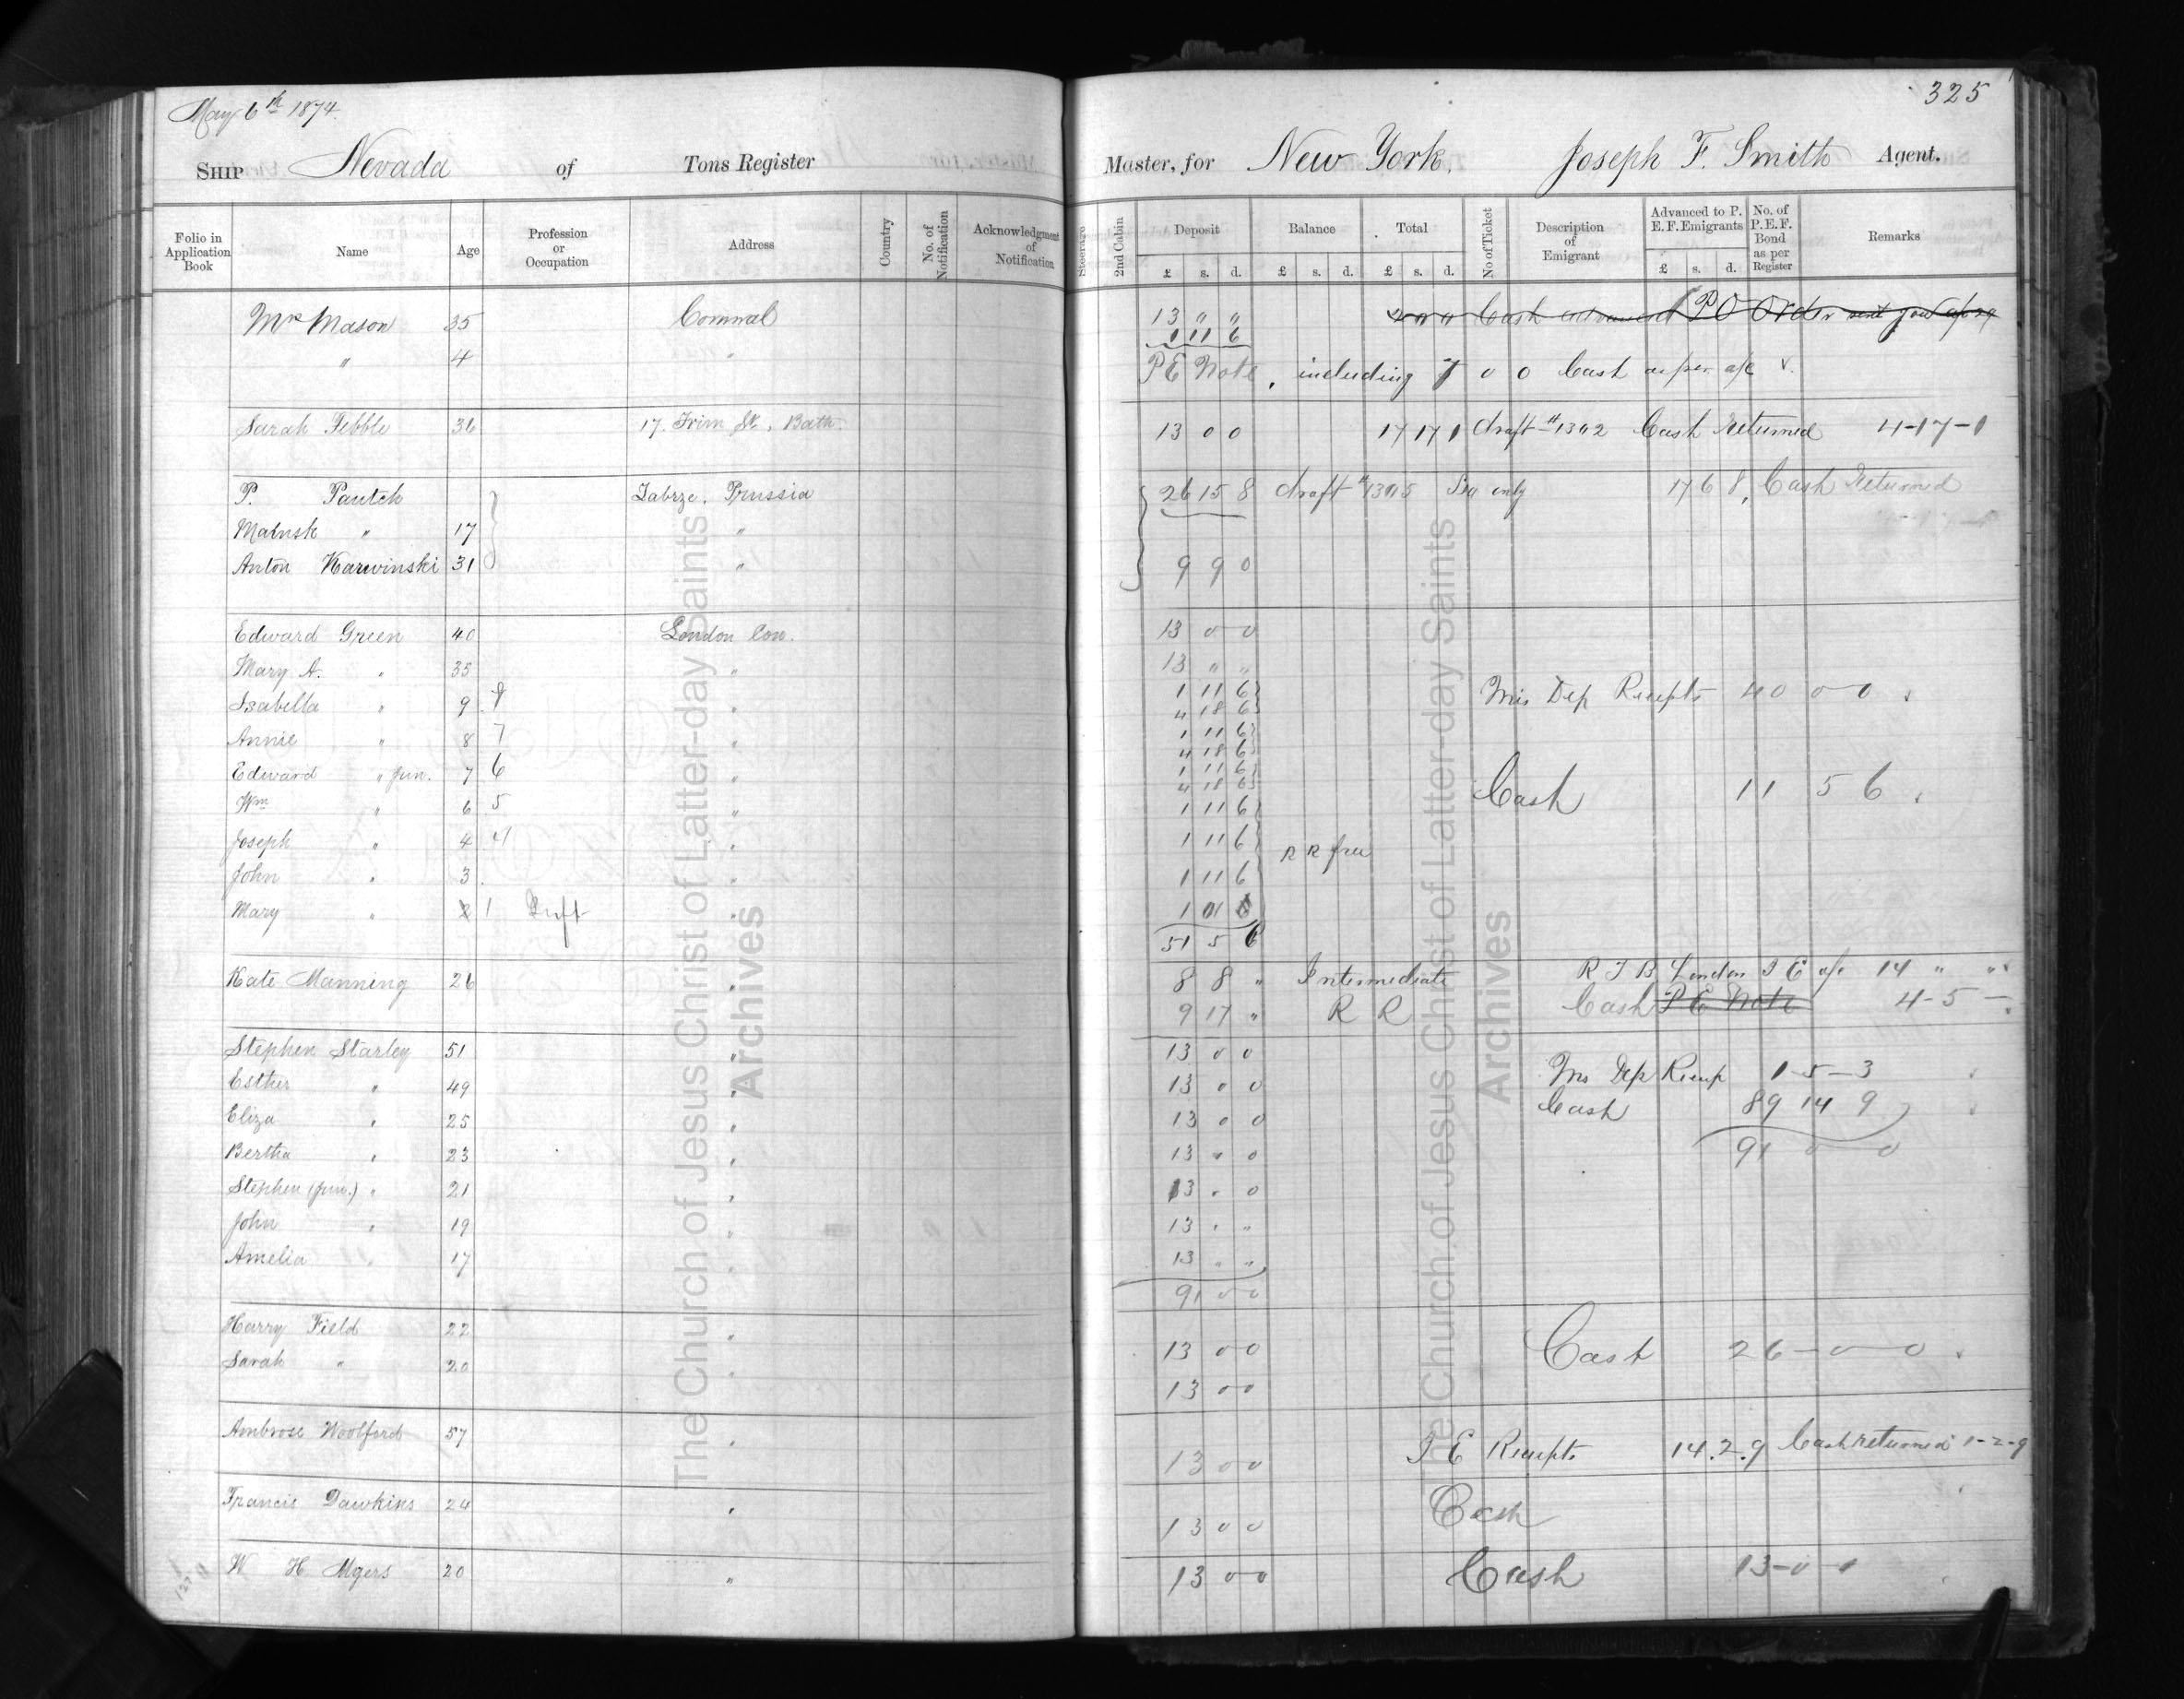 May 6th 1874.
325
SHIP Nevada of Tons Register Master, for New York. Joseph F. Smith Agent.
Folio in Application Book Name Age Profession or Occupation Address Country No. of Notification Acknowledgment of Notification Steerage 2nd Cabin Deposit £ s. d. Balance £ s. d. Total £ s. d. No of Ticket Description of Emigrant Advanced to P. E. F. Emigrants £ s. d. No. of P. E. F. Bond as per Register Remarks
Mason 35 13 " " Cash P O Order
1 11 6
" 4 " P E Note, including 7 0 0 Cash as per a/c
Sarah Pebble 36 17. St. Bath. 13 0 0 17 17 1 draft Cash Returned 4-17-1
P. Pautch Zabrze, Prussia 26 15 8 draft Sea only 17 6 8, Cash Returned
" 17 "
Anton Karwinski 31 " 9 9 0
Edward Green 40 London Con. 13 0 0
Mary A. " 35 " 13 " "
Isabella " 9 8 " 1 11 6 Mis Dep Receipts 40 0 0
4 18 6
Annie " 8 7 " 1 11 6
4 18 6
Edward " Jun. 7 6 " 1 11 6
4 18 6 Cash 11 5 6
Wm " 6 5 " 1 11 6
Joseph " 4 4 " 1 11 6 R R free
John " 3 " 1 11 6
Mary " 2 1 " 1 01 0
51 5 6
Kate Manning 26 " 8 8 " Intermediate R J B London I E a/c 14 " "
9 17 " R R Cash P E Note 4-5-
Stephen Starley 51 " 13 0 0
Esther " 49 13 0 0 Mis Dep Receip 1-5-3
Eliza " 25 " 13 0 0 Cash 89 14 9
Bertha " 23 " 13 " 0 91 0 0
Stephen (Jun.) " 21 " 13 " 0
John " 19 " 13 " "
Amelia " 17 " 13 " "
91 0 0
Harry Field 22 " 13 0 0 Cash 26-0-0
Sarah " 20 " 13 0 0
Ambrose Woolford 57 " 13 0 0 I E Receipts 14.2.9 Cash returned 1-2-9
Francis Dawkins 24 " 13 0 0 Cash
W H Myers 20 " 13 0 0 Cash 13-0-
The Church of Jesus Christ of Latter-day Saints
Archives
The Church of Jesus Christ of Latter-day Saints
Archives